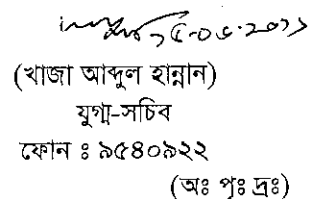 ২৫-০৬-২০১১
(খাজা আব্দুল হান্নান)
যুগ্ম-সচিব
ফোন ঃ ৯৫৪০৯২২
(অঃ পৃঃ দ্রঃ)